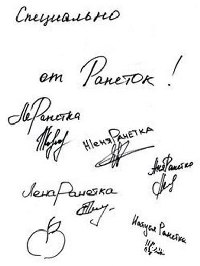 Специально
от Ранеток!
ЛеРанетка
ЖеняРанетка
АняРанетка
ЛенаРанетка
Наташа Ранетка